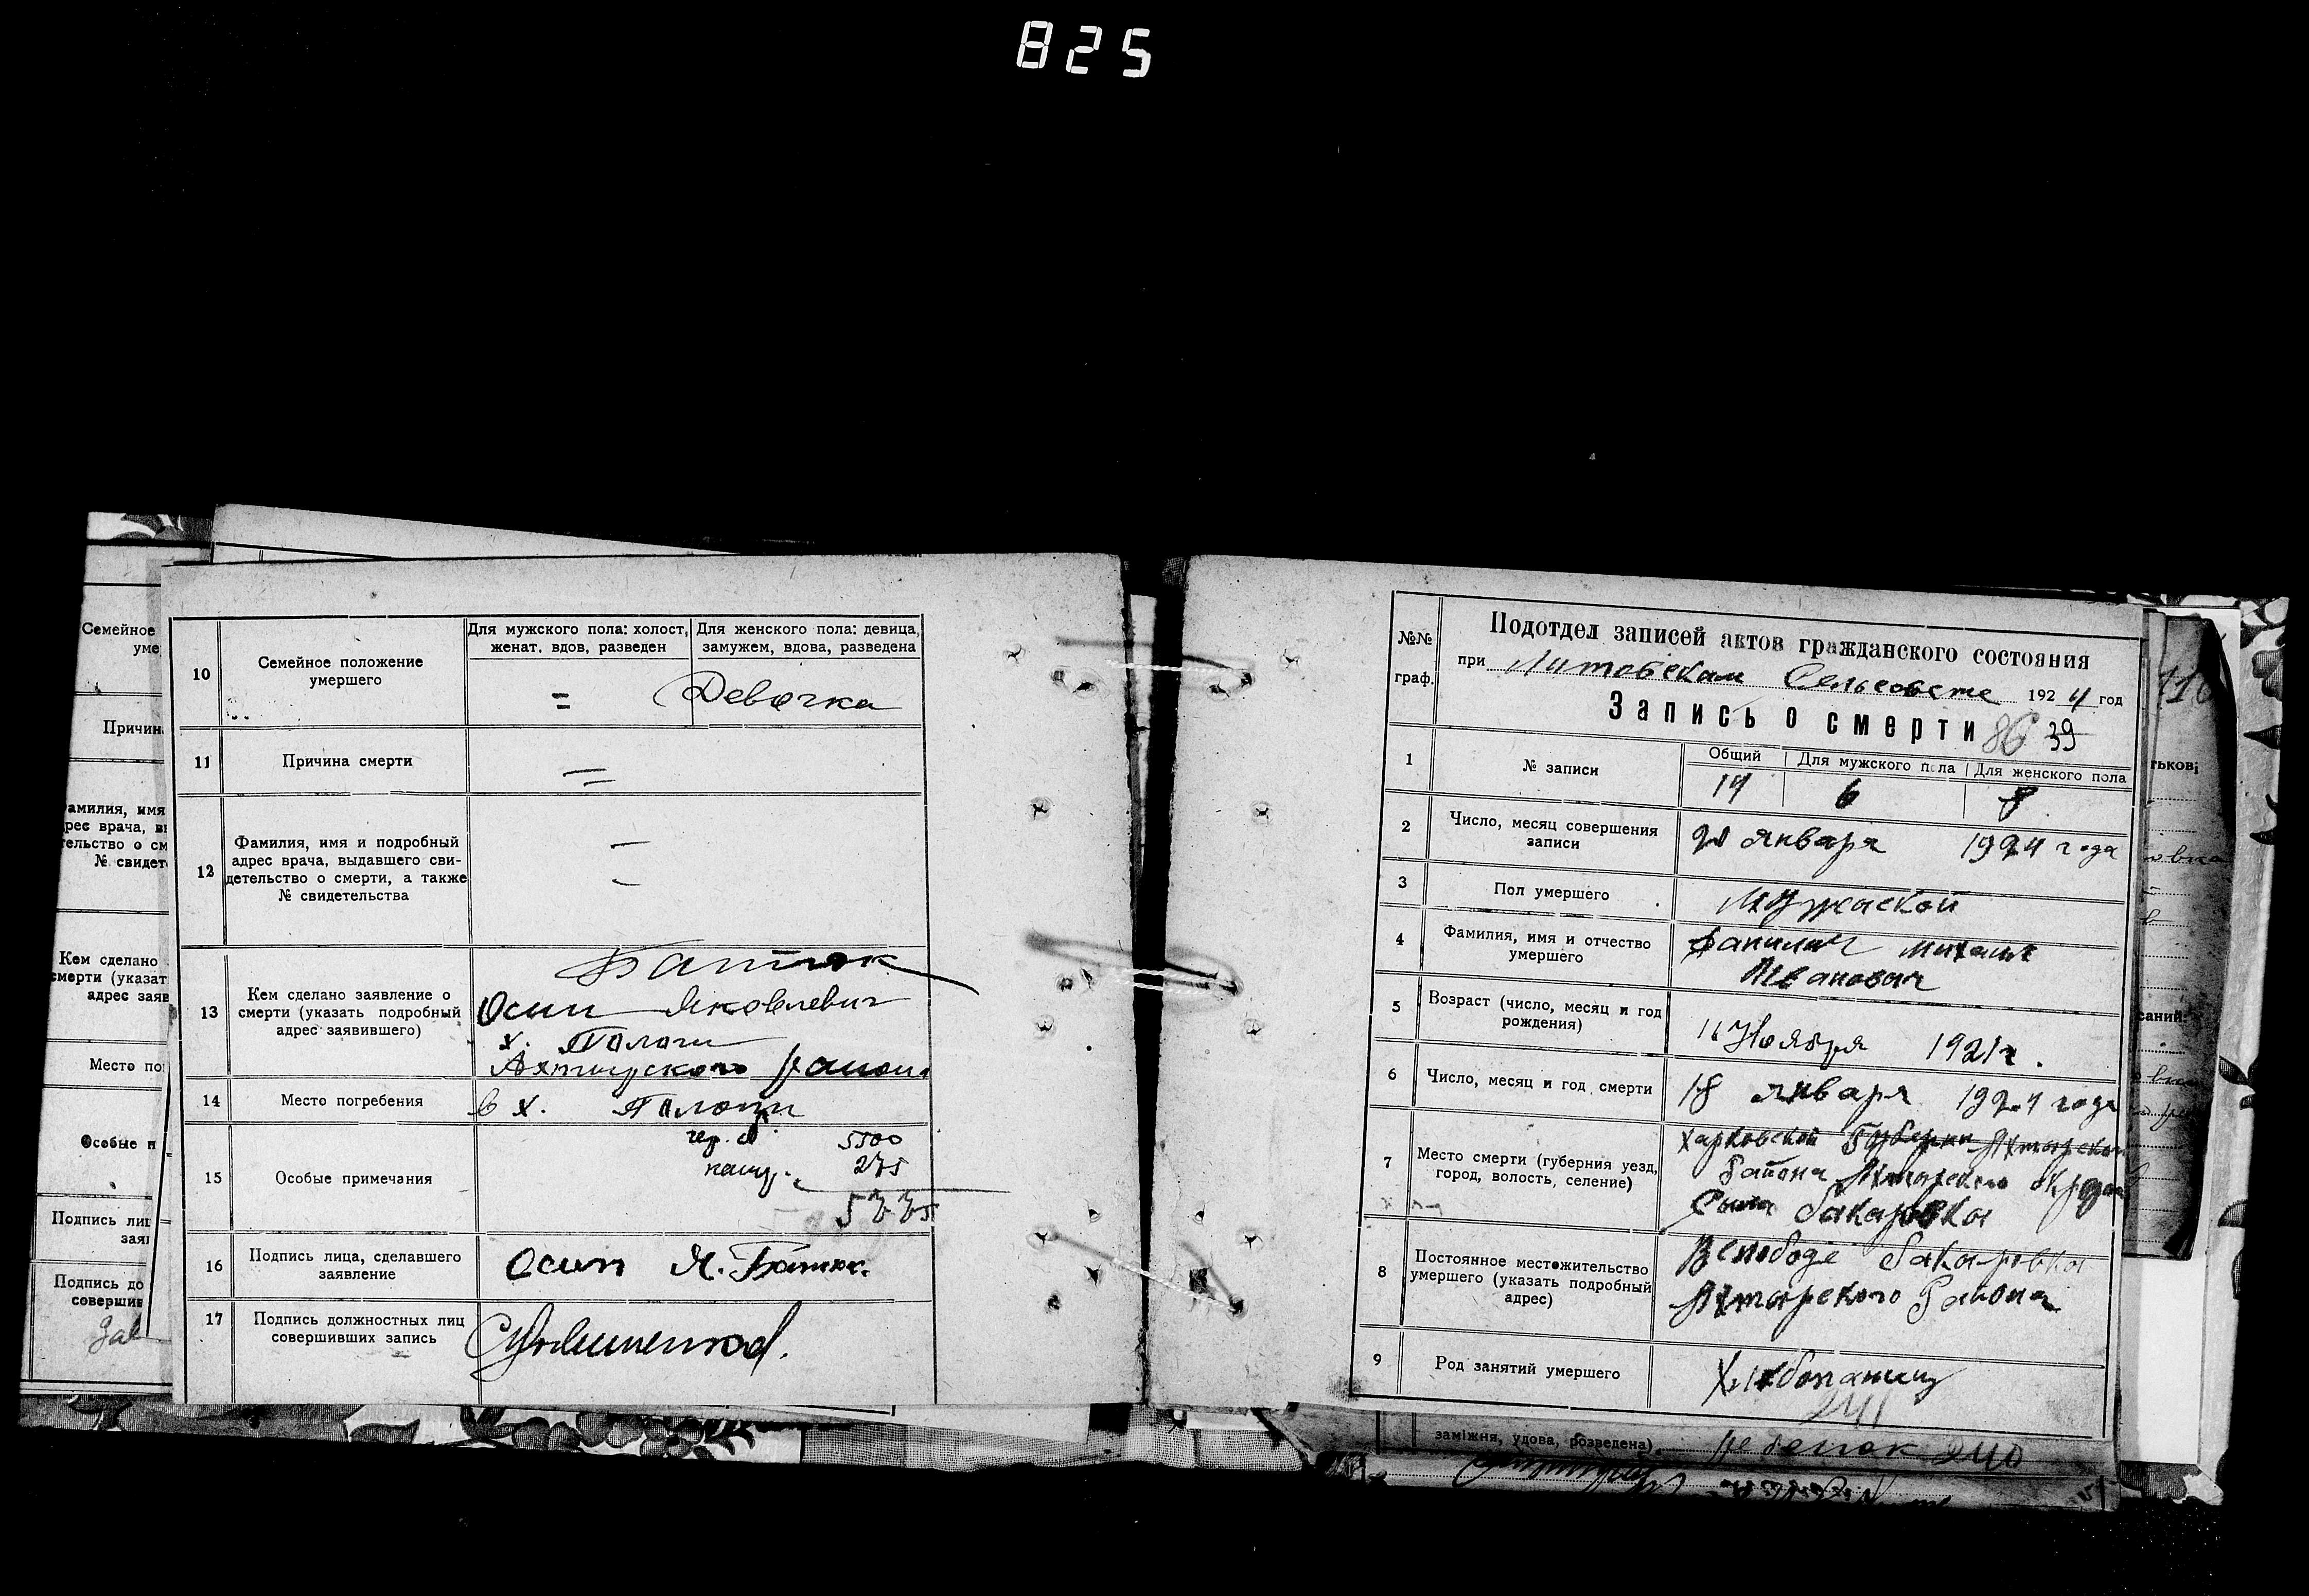 825
Семейное
уме
Причин
амилия, имя
рес врача, в
тельство о см
№ свидет
Кем сделано
смерти (указат
адрес заяв
Место по
Особые п
Подпись лиц
заяв
Подпись до
совершив
Зав
10
Семейное положение
умершего
Для мужского пола: холост,
женат, вдов, разведен
Для женского пола: девица,
замужем, вдова, разведена
=
Девочка
11
Причина смерти
=
12
Фамилия, имя и подробный
адрес врача, выдавшего сви-
детельство о смерти, а также
№ свидетельства
—
—
13
Кем сделано заявление о
смерти (указать подробный
адрес заявившего)
Батюк
Осип Яковлевич
х.
Ахтырского района
14
Место погребения
в х.
15
Особые примечания
5500
275
5775
16
Подпись лица, сделавшего
заявление
Осип Я. Батюк.
17
Подпись должностных лиц
совершивших запись
№№
граф.
Подотдел записей актов гражданского состояния
при Литовском Сельсовете 1924 год
Запись о смерти 86 39
1
№ записи
Общий
Для мужского пола
Для женского пола
14
6
8
2
Число, месяц совершения
записи
20 января 1924 года
3
Пол умершего
Мужской
4
Фамилия, имя и отчество
умершего
Михаил
Иванович
5
Возраст (число, месяц и год
рождения)
Ноября 1921 г.
6
Число, месяц и год смерти
18 января 1924 года
7
Место смерти (губерния уезд,
город, волость, селение)
Харковской Губернии Ахтырского
Района Ахтырского округа
Бакаровка
8
Постоянное местожительство
умершего (указать подробный
адрес)
В слободе Бакаровка
Ахтырского Района
9
Род занятий умершего
Хлебопашец
241
заміжня, удова, розведена)
Ребенок 240